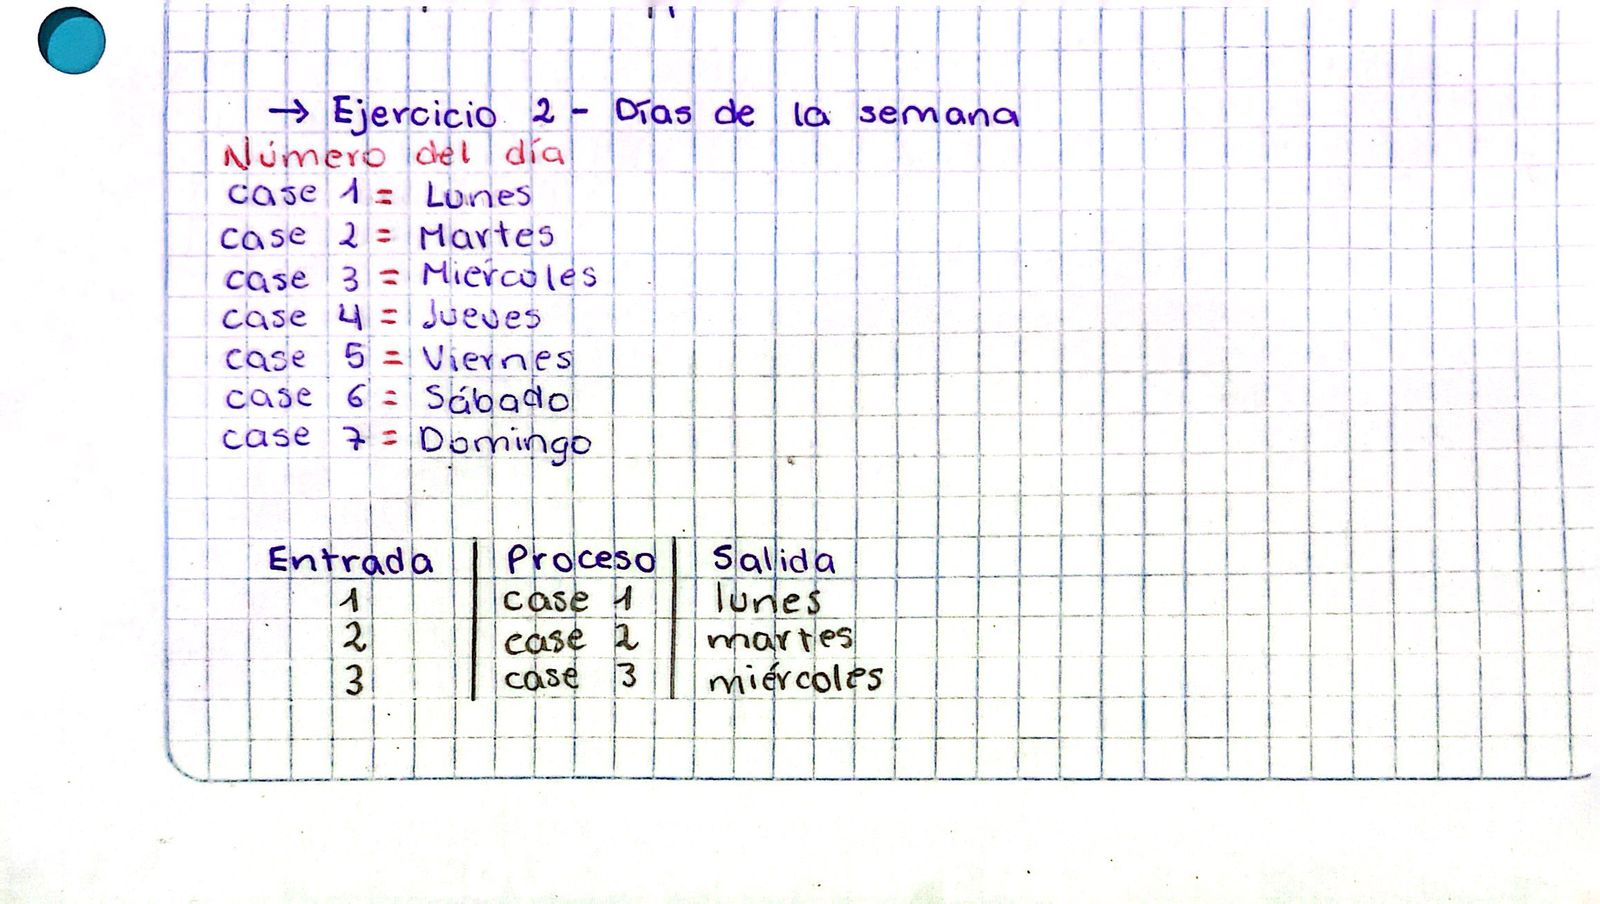 → Ejercicio 2 - Días de la semana
Número del día
case 1 = Lunes
case 2 = Martes
case 3 = Miércoles
case 4 = Jueves
case 5 = Viernes
case 6 = Sábado
case 7 = Domingo
Entrada | Proceso | Salida
1 | case 1 | lunes
2 | case 2 | martes
3 | case 3 | miércoles